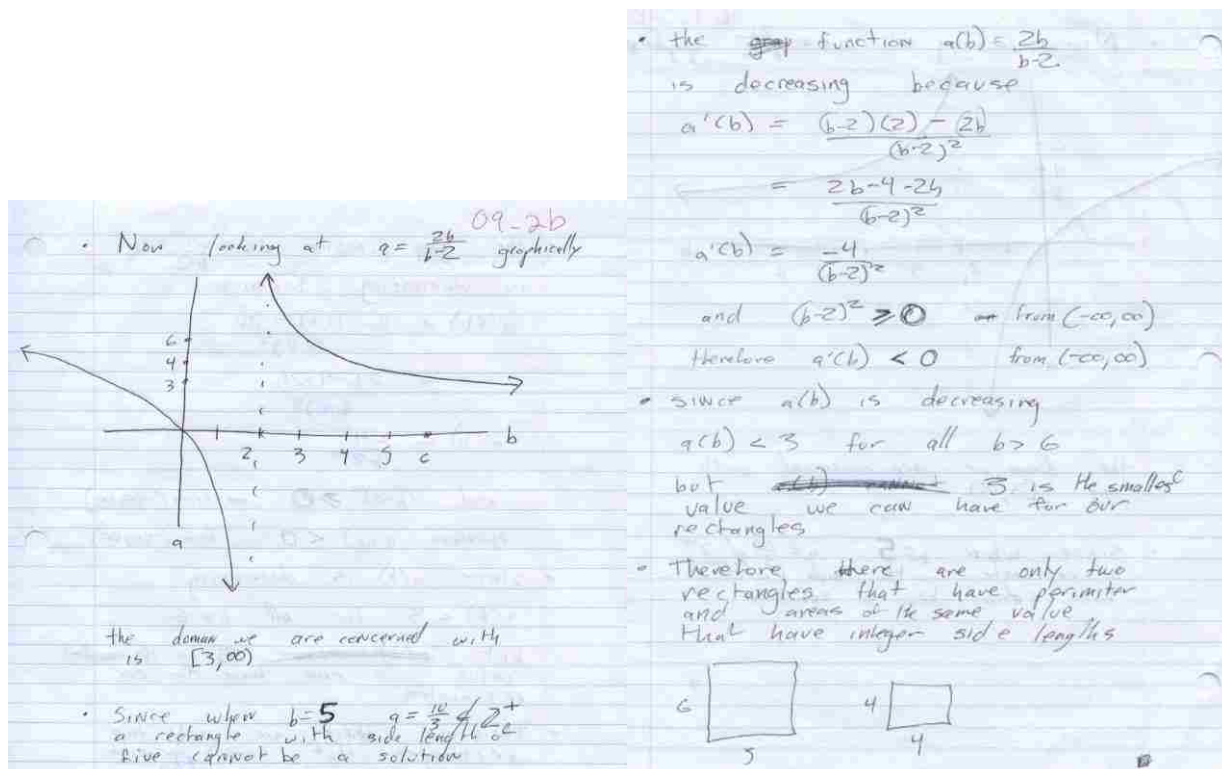 09-2b
• Now looking at a = 2b/b-2 graphically
6
4
3
2 3 4 5 6 b
a
the domain we are concerned with
is [3,∞)
• Since when b=5 a = 10/3 ∉ Z⁺
a rectangle with side length of
five cannot be a solution
• the function a(b) = 2b/b-2
is decreasing because
a'(b) = (b-2)(2) - (2b)/(b-2)²
= 2b-4-2b/(b-2)²
a'(b) = -4/(b-2)²
and (b-2)² ≥ 0 from (-∞,∞)
therefore a'(b) < 0 from (-∞,∞)
• since a(b) is decreasing
a(b) < 3 for all b > 6
but 3 is the smallest
value we can have for our
rectangles
• Therefore there are only two
rectangles that have perimiter
and areas of the same value
that have integer side lengths
6
3
4
4